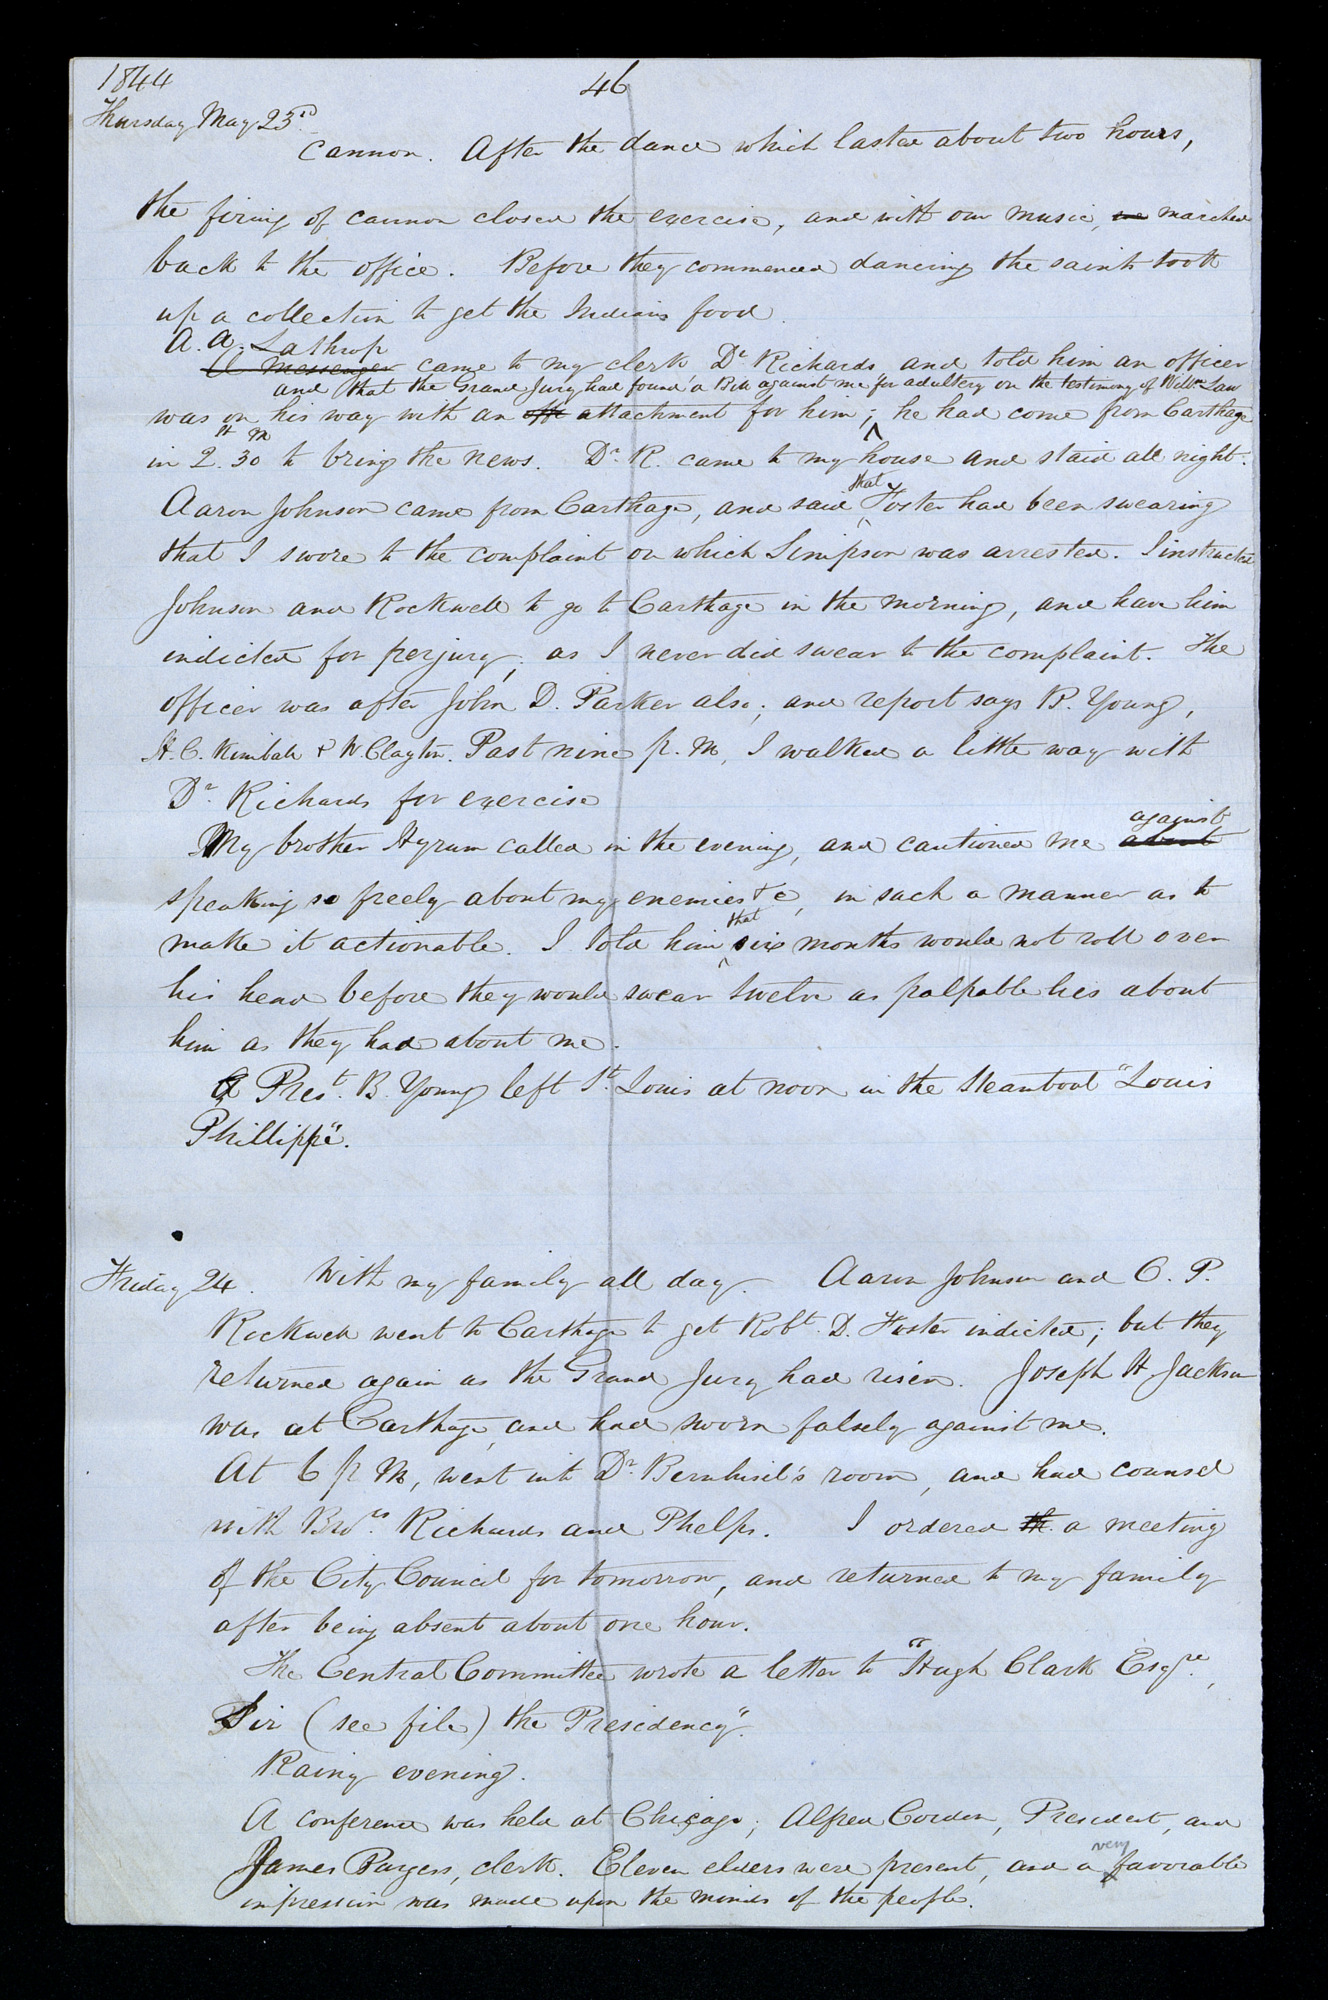 1844
46
Thursday May 23rd
Cannon. After the dance which lasted about two hours,
the firing of cannon closed the exercise, and with our music, we marched
back to the office. Before they commenced dancing the saints took
up a collection to get the Indians food.
A. A. Lathrop
A messenger came to my clerk Dr Richards and told him an officer
and that the Grand Jury had found a Bill against me for adultery on the testimony of Willm Law
was on his way with an att attachment for him; he had come from Carthage
H M
in 2.30 to bring the news. Dr R. came to my house and staid all night.
that
Aaron Johnson came from Carthage, and said Foster had been swearing
that I swore to the complaint on which Simpson was arrested. I instructed
Johnson and Rockwell to go to Carthage in the morning, and have him
indicted for perjury, as I never did swear to the complaint. The
officer was after John D. Parker also; and report says B. Young,
H. C. Kimball & W. Clayton. Past nine p. M, I walked a little way with
Dr Richards for exercise
against
My brother Hyrum called in the evening, and cautioned me about
speaking so freely about my enemies &c, in such a manner as to
that
make it actionable. I told him six months would not roll over
his head before they would swear twelve as palpable lies about
him as they had about me.
Prest. B. Young left St. Louis at noon in the Steamboat "Louis
Phillippe".
Friday 24. With my family all day. Aaron Johnson and O. P.
Rockwell went to Carthage to get Robt. D. Foster indicted; but they
returned again as the Grand Jury had risen. Joseph H. Jackson
was at Carthage, and had sworn falsely against me.
At 6 p M, went into Dr Bernhisel's room, and had counsel
with Bros. Richards and Phelps. I ordered th a meeting
of the City Council for tomorrow, and returned to my family
after being absent about one hour.
The Central Committee wrote a letter to "Hugh Clark Esqre,
Sir (see file) the Presidency".
Rainy evening.
A conference was held at Chicago; Alfred Cordon, President, and
very
James Burgess, clerk. Eleven elders were present, and a favorable
impression was made upon the minds of the people.